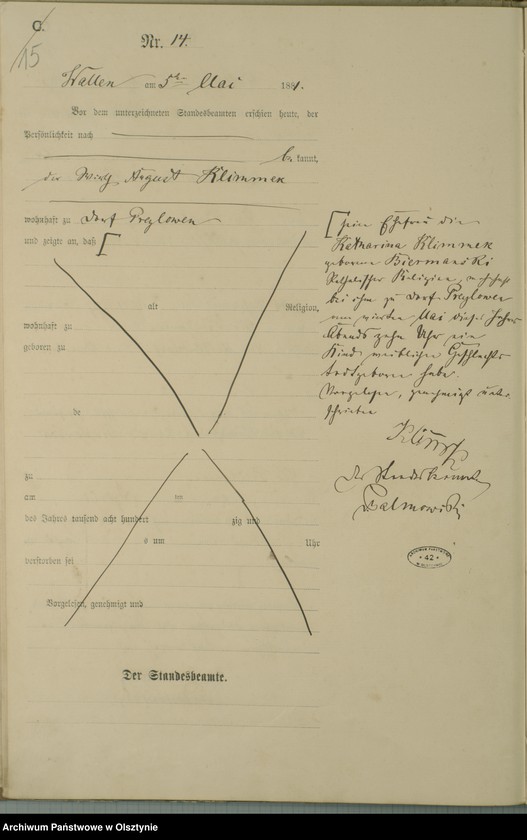 C.
15
Nr. 14.
Wallen am 5ten Mai 1881.
Vor dem unterzeichneten Standesbeamten erschien heute, der
Persönlichkeit nach
be kannt,
der Wirth August Klimmek
wohnhaft zu Dorf Preylowen
und zeigte an, daß [
alt Religion,
wohnhaft zu
geboren zu
de
zu
am ten
des Jahres tausend acht hundert zig und
s um Uhr
verstorben sei
Vorgelesen, genehmigt und
Der Standesbeamte.
[seine Ehefrau die
Katharina Klimmek
geborene Biermanski
Katholischer Religion, wohnhaft
bei ihm zu Dorf Preylowen
am vierten Mai dieses Jahres
Abends zehn Uhr ein
Kind weiblichen Geschlechts
todtgeboren habe.
Vorgelesen, genehmigt unter-
schrieben
Der Standesbeamte
42
Archiwum Państwowe w Olsztynie